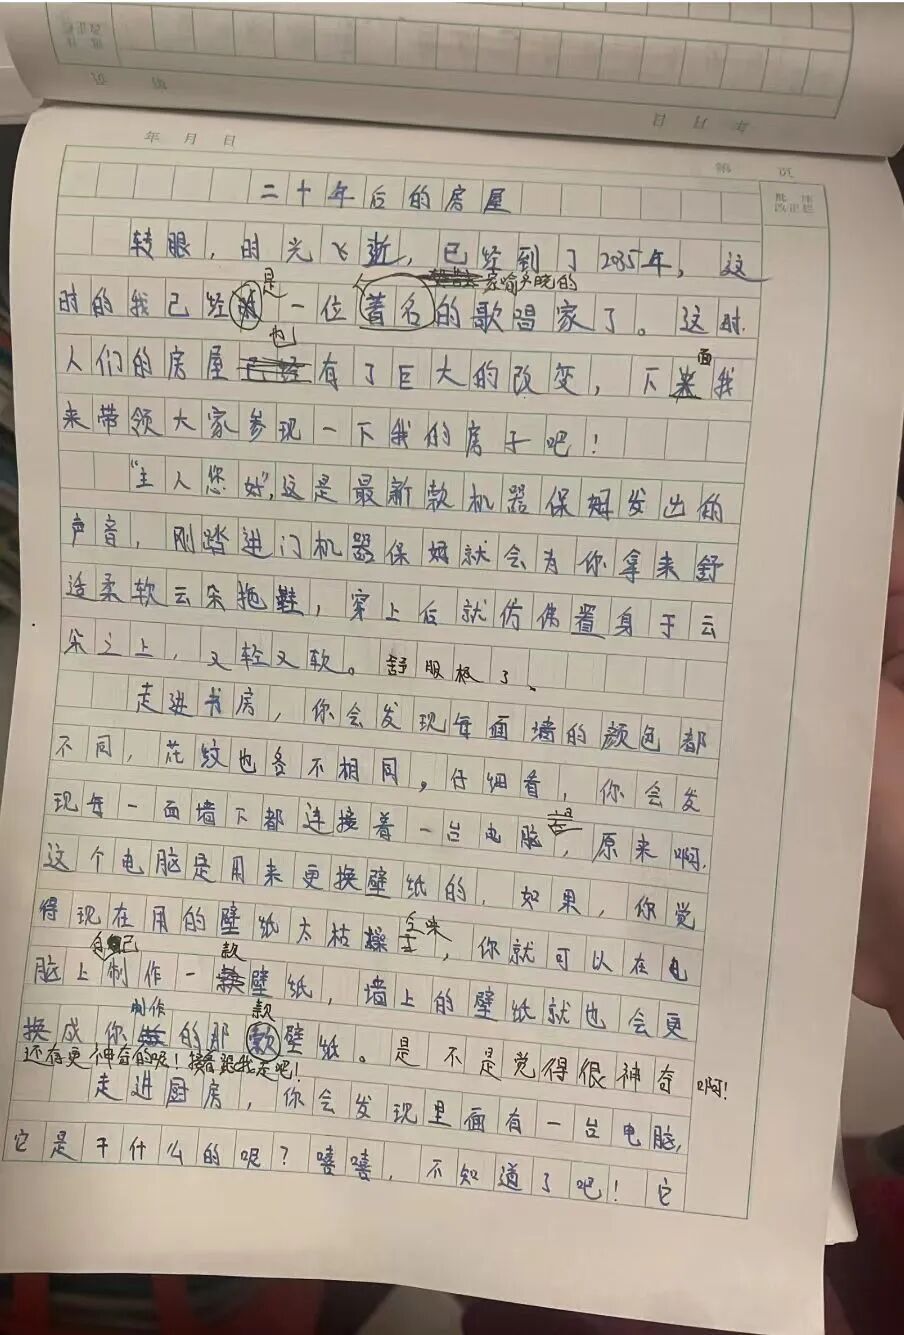 年 月 日
第 页
二十年后的房屋
转眼，时光飞逝，已经到了2035年，这
家喻户晓的
是
时的我已经一位著名的歌唱家了。这时，
也
面
人们的房屋已经有了巨大的改变，下来我
来带领大家参现一下我的房子吧！
“主人您好”，这是最新款机器保姆发出的
声音，刚踏进门机器保姆就会为你拿来舒
适柔软云朵拖鞋，穿上后就仿佛置身于云
朵之上，又轻又软。舒服极了、
走进书房，你会发现每面墙的颜色都
不同，花纹也各不相同。仔细看，你会发
现每一面墙下都连接着一台电脑，原来啊，
这个电脑是用来更换壁纸的，如果，你觉
得现在用的壁纸太枯操乏味，你就可以在电
自己
款
脑上制作一壁纸，墙上的壁纸就也会更
制作
款
换成你的那款壁纸。是不是觉得很神奇啊！
还有更神奇的呢！接着跟我走吧！
走进厨房，你会发现里面有一台电脑，
它是干什么的呢？嘻嘻，不知道了吧！它